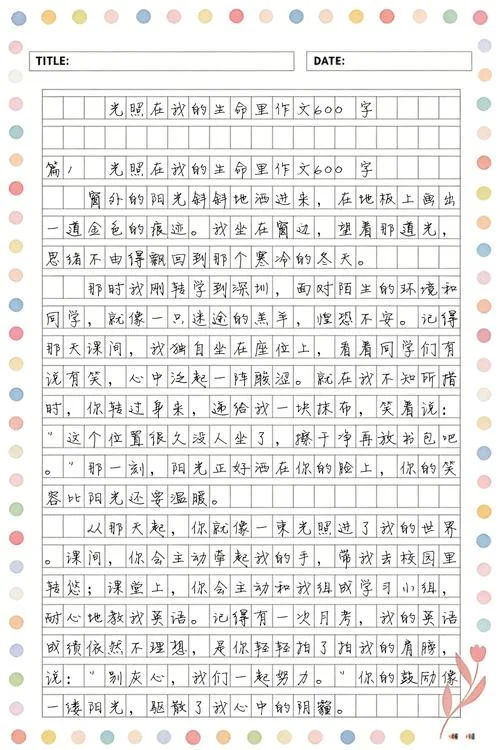 TITLE:
DATE:
光照在我的生命里作文600 字
篇1 光照在我的生命里作文600 字
窗外的阳光斜斜地洒进来，在地板上画出
一道金色的痕迹。我坐在窗边，望着那道光，
思绪不由得飘回到那个寒冷的冬天。
那时我刚转学到深圳，面对陌生的环境和
同学，就像一只迷途的羔羊，惶恐不安。记得
那天课间，我独自坐在座位上，看着同学们有
说有笑，心中泛起一阵酸涩。就在我不知所措
时，你转过身来，递给我一块抹布，笑着说：
"这个位置很久没人坐了，擦干净再放书包吧
。"那一刻，阳光正好洒在你的脸上，你的笑
容比阳光还要温暖。
从那天起，你就像一束光照进了我的世界
。课间，你会主动牵起我的手，带我去校园里
转悠；课堂上，你会主动和我组成学习小组，
耐心地教我英语。记得有一次月考，我的英语
成绩依然不理想，是你轻轻拍了拍我的肩膀，
说："别灰心，我们一起努力。"你的鼓励像
一缕阳光，驱散了我心中的阴霾。